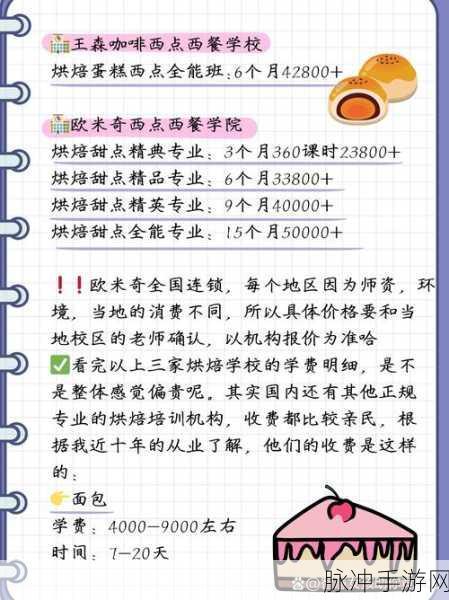 🏫王森咖啡西点西餐学校
烘焙蛋糕西点全能班:6个月42800+
🏫欧米奇西点西餐学院
烘焙甜点精典专业：3个月360课时23800+
烘焙甜点精品专业：6个月33800+
烘焙甜点精英专业：9个月40000+
烘焙甜点全能专业：15个月50000+
❗❗欧米奇全国连锁，每个地区因为师资，环
境，当地的消费不同，所以具体价格要和当
地校区的老师确认，以机构报价为准哈
✅看完以上三家烘焙学校的学费明细，是不
是整体感觉偏贵呢。其实国内还有其他正规
专业的烘焙培训机构，收费都比较亲民，根
据我近十年的从业了解，他们的收费是这样
的：
👉面包
学费：4000-9000左右
时间：7-20天
脉冲手游网